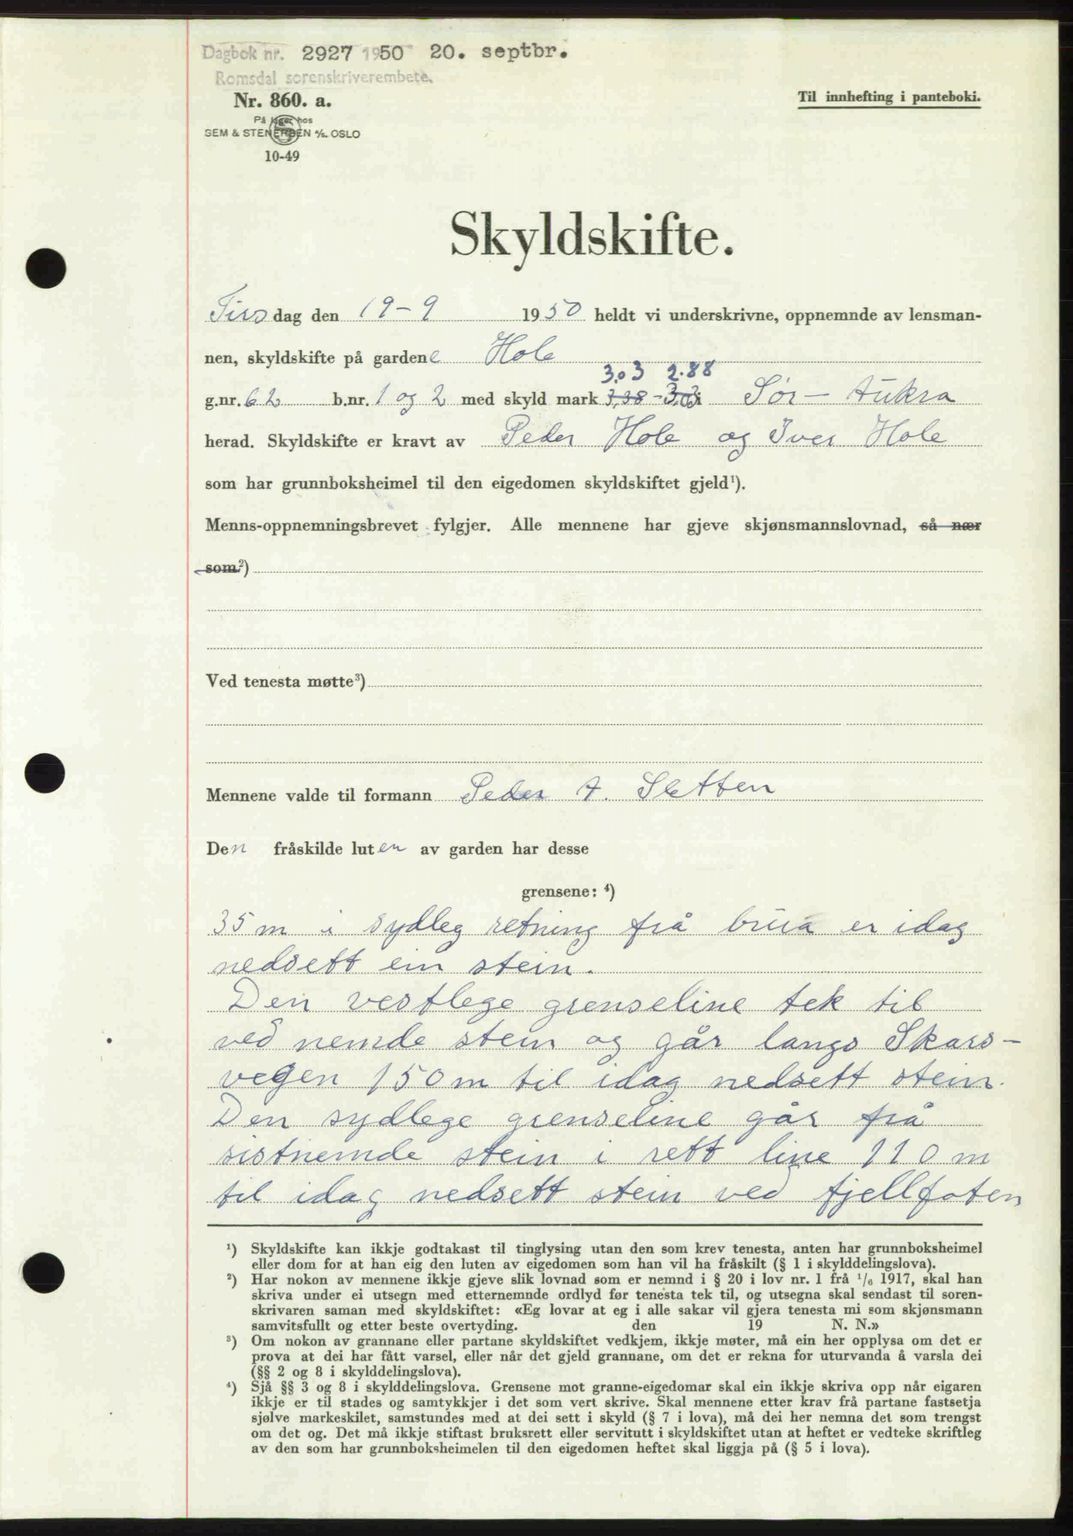 Dagbok nr. 2927 1950 20. septbr.
Romsdal sorenskriverembete.
Nr. 860. a.
Til innhefting i panteboki.
På lager hos
SEM & STENERSEN A/S. OSLO
10-49
Skyldskifte.
Tirsdag den 19-9 1950 heldt vi underskrivne, oppnemnde av lensman-
nen, skyldskifte på gardene Hole
3.03 2.88
g.nr. 62 b.nr. 1 og 2 med skyld mark 3,38 - 3,03 i Sør-Aukra
herad. Skyldskifte er kravt av Peder Hole og Iver Hole
som har grunnboksheimel til den eigedomen skyldskiftet gjeld¹).
Menns-oppnemningsbrevet fylgjer. Alle mennene har gjeve skjønsmannslovnad, så nær
som²)
Ved tenesta møtte³)
Mennene valde til formann Peder A. Sletten
Den fråskilde luten av garden har desse
grensene: ⁴)
35 m i sydleg retning frå brua er idag
nedsett ein stein.
Den vestlege grenseline tek til
ved nemde stein og går langs Skars-
vegen 150 m til idag nedsett stein.
Den sydlege grenseline går frå
sistnemde stein i rett line 110 m
til idag nedsett stein ved fjellfoten
¹) Skyldskifte kan ikkje godtakast til tinglysing utan den som krev tenesta, anten har grunnboksheimel
eller dom for at han eig den luten av eigedomen som han vil ha fråskilt (§ 1 i skylddelingslova).
²) Har nokon av mennene ikkje gjeve slik lovnad som er nemnd i § 20 i lov nr. 1 frå 1/6 1917, skal han
skriva under ei utsegn med etternemnde ordlyd før tenesta tek til, og utsegna skal sendast til soren-
skrivaren saman med skyldskiftet: «Eg lovar at eg i alle sakar vil gjera tenesta mi som skjønsmann
samvitsfullt og etter beste overtyding. den 19 N. N.»
³) Om nokon av grannane eller partane skyldskiftet vedkjem, ikkje møter, må ein her opplysa om det er
prova at dei har fått varsel, eller når det gjeld grannane, om det er rekna for uturvanda å varsla dei
(§§ 2 og 8 i skylddelingslova).
⁴) Sjå §§ 3 og 8 i skylddelingslova. Grensene mot granne-eigedomar skal ein ikkje skriva opp når eigaren
ikkje er til stades og samtykkjer i det som vert skrive. Skal mennene etter krav frå partane fastsetja
sjølve markeskilet, samstundes med at dei sett i skyld (§ 7 i lova), må dei her nemna det som trengst
om det og. Det må ikkje stiftast bruksrett eller servitutt i skyldskiftet utan at heftet er vedteke skriftleg
av den som har grunnboksheimelen til den eigedomen heftet skal liggja på (§ 5 i lova).